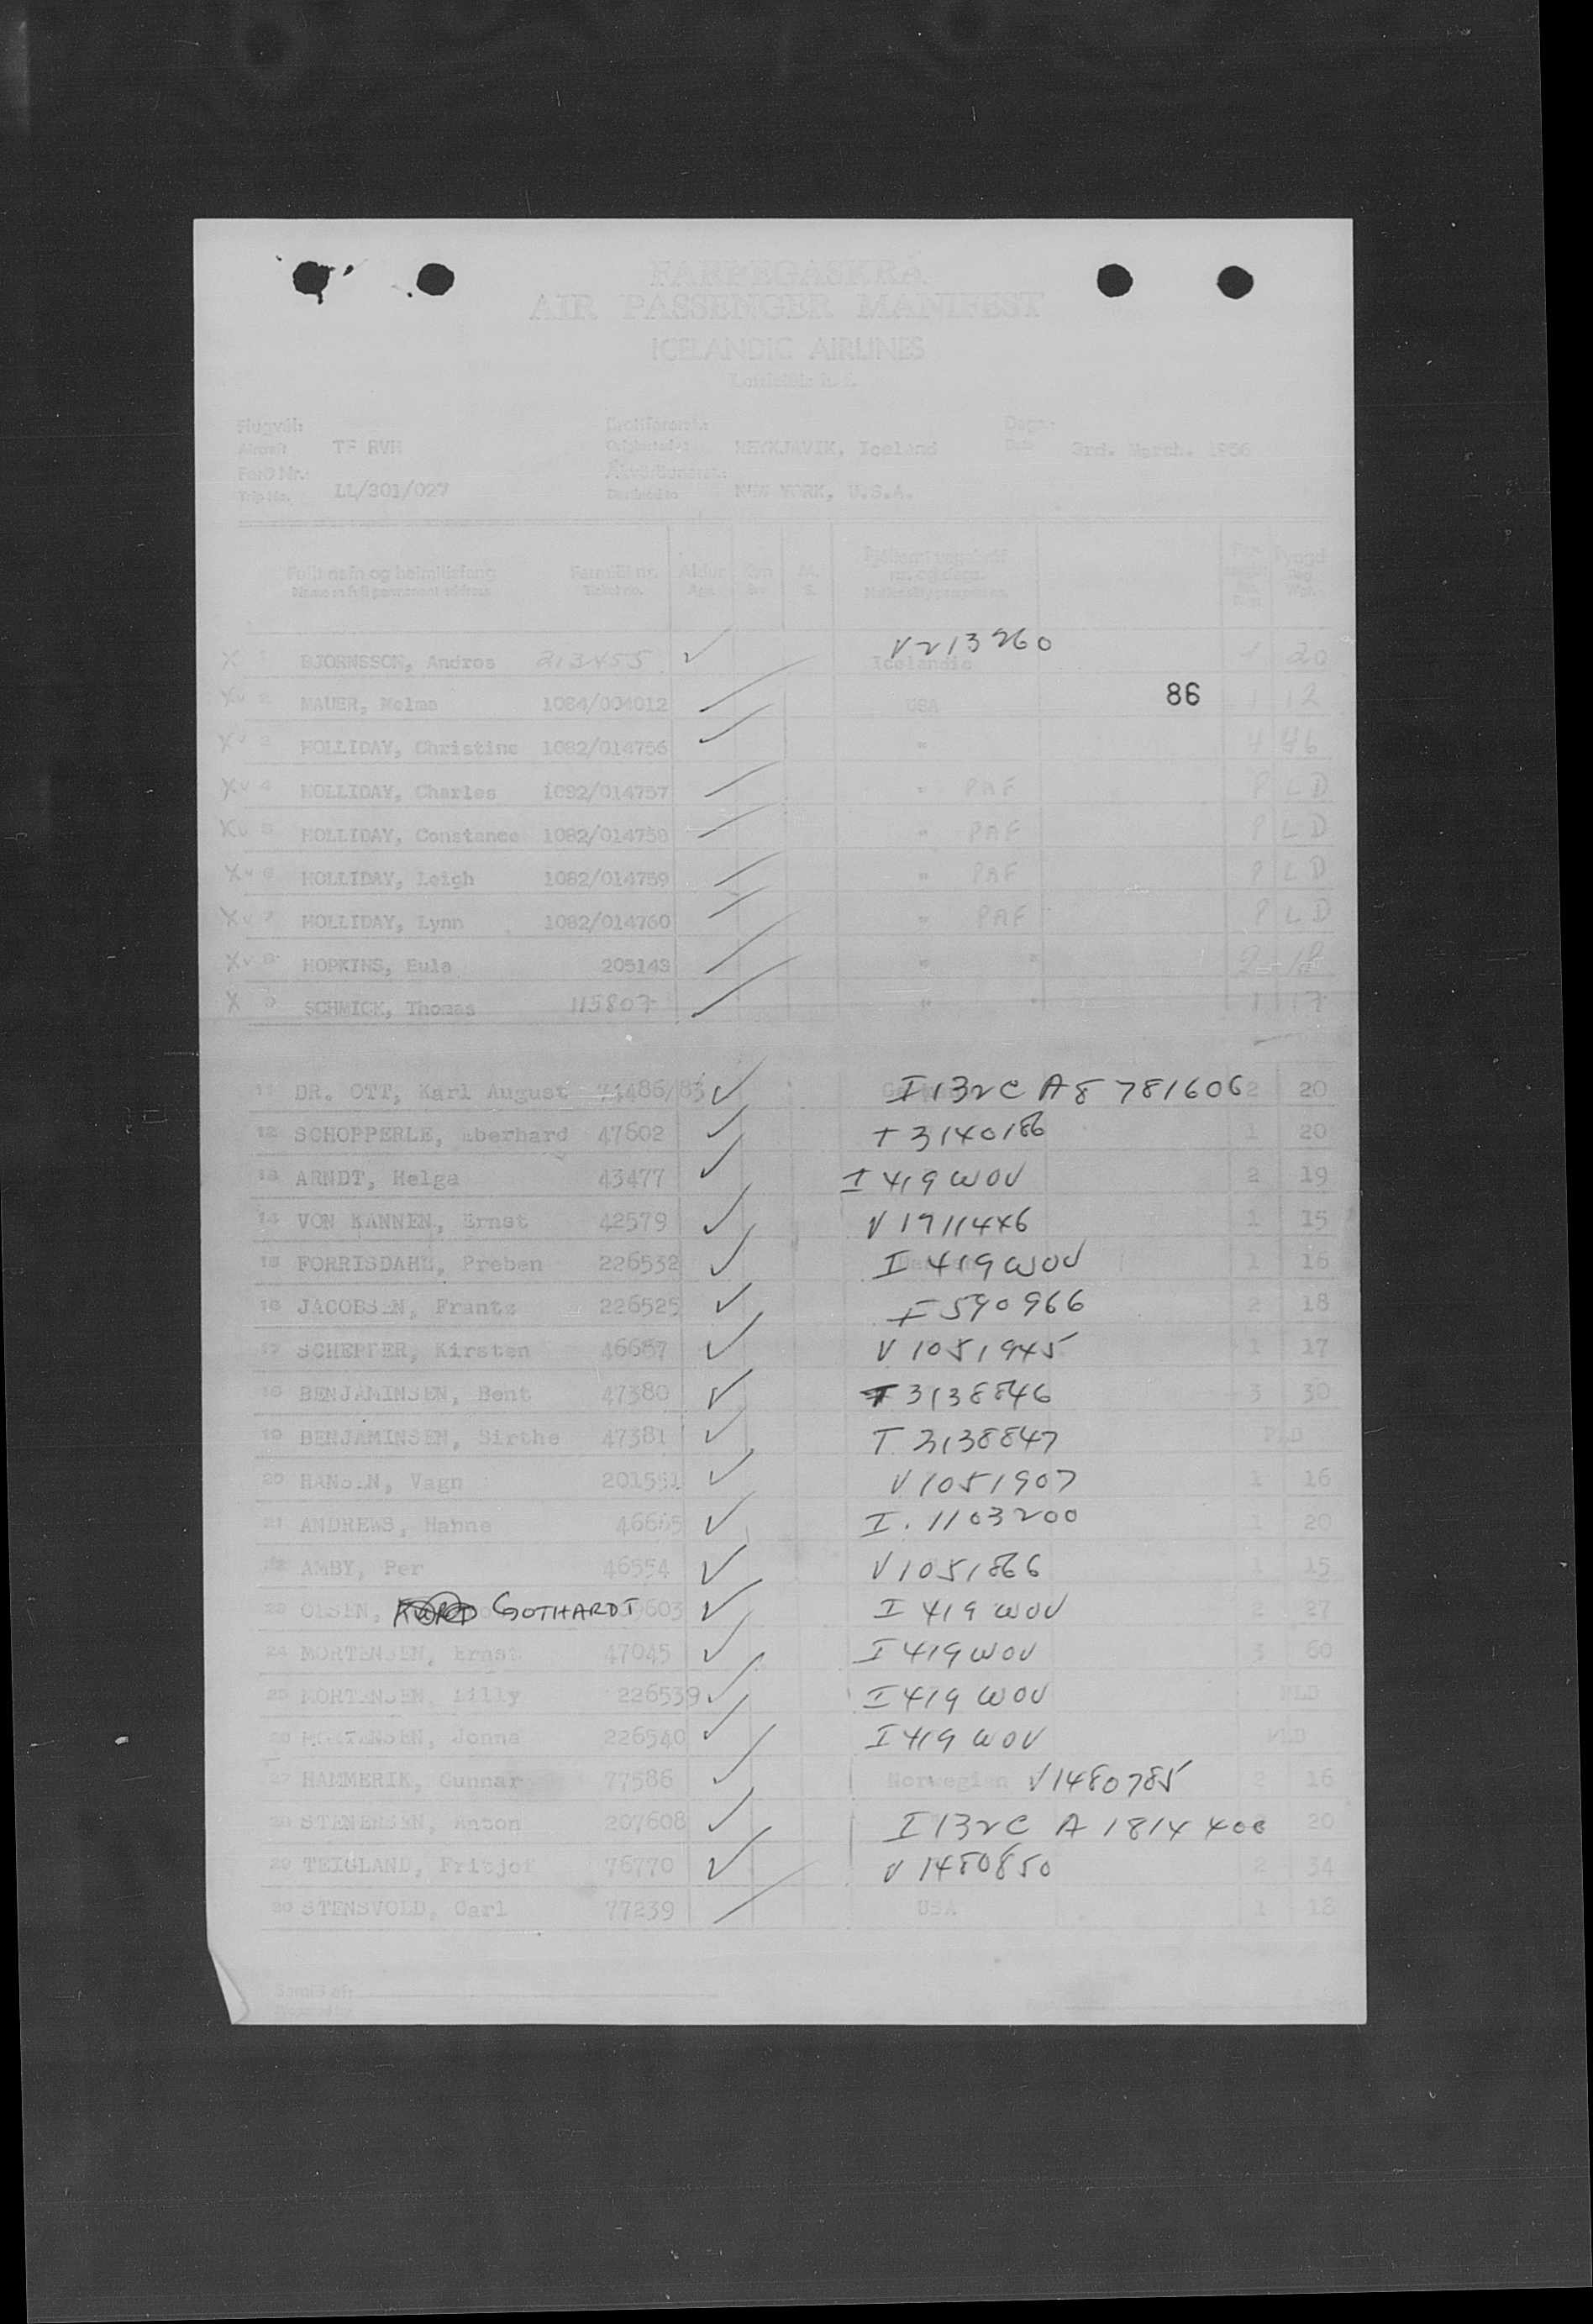 FARÞEGASKRÁ
AIR PASSENGER MANIFEST
ICELANDIC AIRLINES
Loftleiðir h. f.
Flugvél:
Aircraft TF RVH
Dags.:
Date 3rd. March. 1956
REYKJAVIK, Iceland
Ferð Nr.:
Trip No. LL/301/027
Destined to NEW YORK, U.S.A.
Fullt nafn og heimilisfang Farmiði nr. Aldur
Name in full permanent address Ticket no. Age
X BJORNSSON, Andres 213455 ✓ Icelandic V213260 20
Xv 2 MAUER, Melma 1084/004012 USA 86 1 12
Xv 3 HOLLIDAY, Christine 1082/014756 ✓ " 4 46
Xv 4 HOLLIDAY, Charles 1082/014757 " PAF PLD
Xv 5 HOLLIDAY, Constance 1082/014758 " PAF PLD
Xv 6 HOLLIDAY, Leigh 1082/014759 " PAF PLD
Xv 7 HOLLIDAY, Lynn 1082/014760 " PAF PLD
Xv 8 HOPKINS, Eula 205143 " 2 18
X SCHMICK, Thomas 115807 " 1 17
11 DR. OTT, Karl August 74486/83 ✓ I132C A8 781606 2 20
12 SCHOPPERLE, Eberhard 47602 ✓ T 3140186 1 20
13 ARNDT, Helga 43477 ✓ I 419 WOV 2 19
14 VON KANNEN, Ernst 42579 ✓ V 1911446 1 15
15 FORRISDAHL, Preben 226532 ✓ I 419 WOV 1 16
16 JACOBSEN, Frants 226525 ✓ I 590966 2 18
17 SCHEPTER, Kirsten 46687 ✓ V 1051945 1 17
18 BENJAMINSEN, Bent 47380 ✓ T 3138846 3 30
19 BENJAMINSEN, Birthe 47381 ✓ T 3138847 PLD
20 HANSEN, Vagn 201551 ✓ V1051907 1 16
21 ANDREWS, Hanne 46665 ✓ I. 1103200 1 20
22 AMBY, Per 46554 ✓ V1051866 1 15
23 OLSEN, GOTHARDT ✓ I 419 WOV 2 27
24 MORTENSEN, Ernst 47045 ✓ I 419 WOV 3 60
25 MORTENSEN, Lilly 226539 ✓ I 419 WOV PLD
26 MORTENSEN, Jonna 226540 ✓ I 419 WOV PLD
27 HAMMERIK, Gunnar 77586 ✓ Norwegian V1480785 2 16
28 STENERSEN, Anton 207608 ✓ I 132C A 1814 400 20
29 TEIGLAND, Fritjof 76770 ✓ V 1480850 2 34
30 STENSVOLD, Carl 77239 USA 1 18